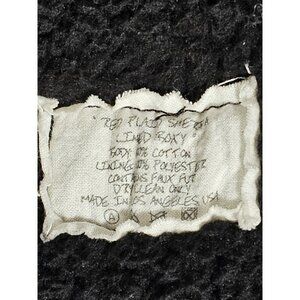 "RED PLAID SHERPA
LINED BOXY"
BODY 100% COTTON
LINING 100% POLYESTER
CONTAINS FAUX FUR
DRYCLEAN ONLY
MADE IN LOS ANGELES USA
A